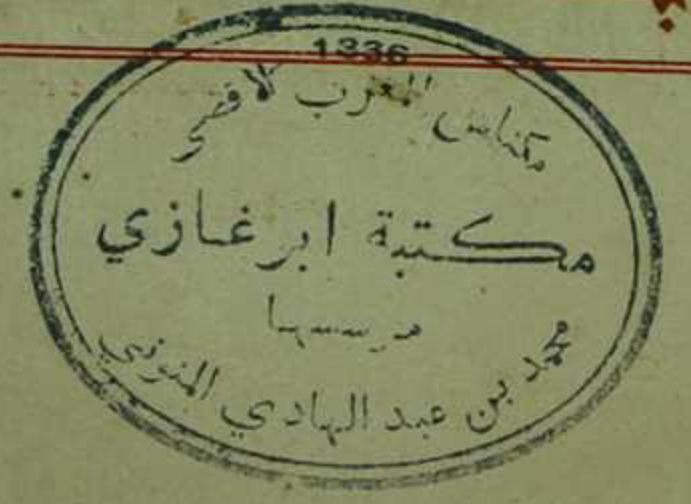 1336
مكناس المغرب الاقصى
مكتبة ابن غازي
مؤسسها
محمد بن عبد الهادي المنوني